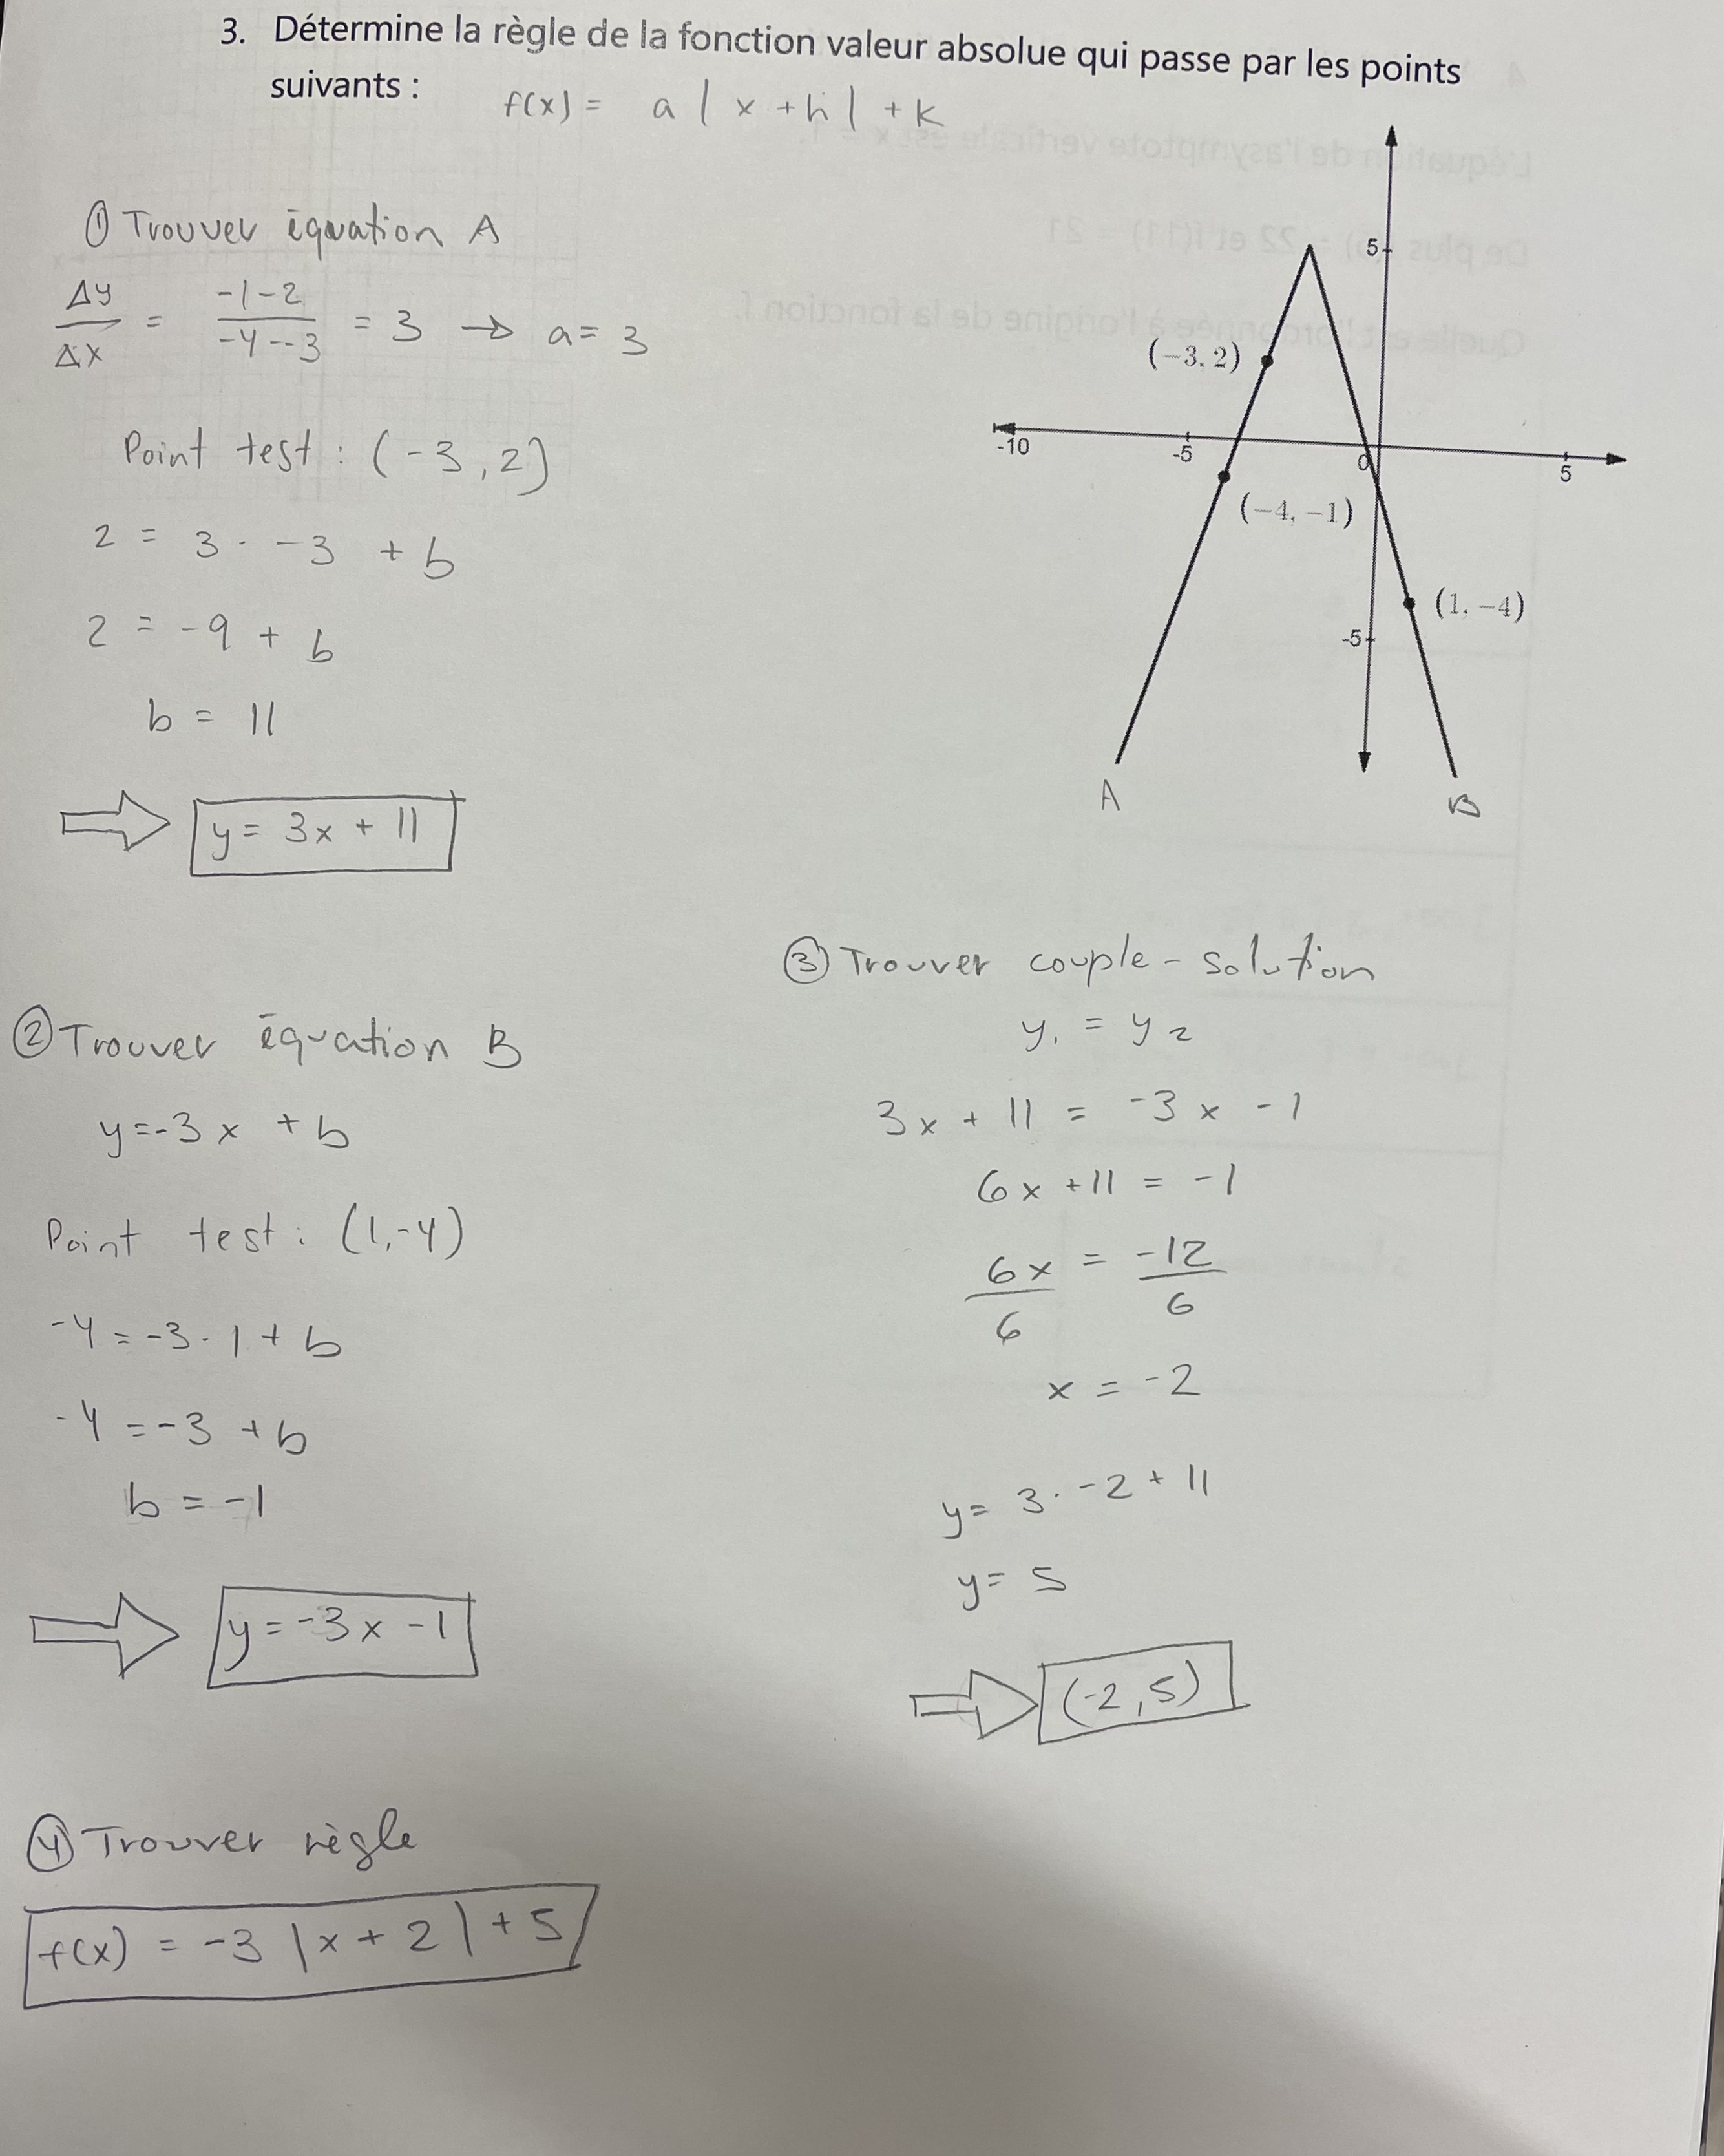 3. Détermine la règle de la fonction valeur absolue qui passe par les points
suivants :
f(x) = a | x + h | + k
① Trouver équation A
Δy/Δx = (-1-2)/(-4--3) = 3 → a = 3
Point test : (-3, 2)
2 = 3 · -3 + b
2 = -9 + b
b = 11
⇒ y = 3x + 11
5
(-3, 2)
-10
-5
0
5
(-4, -1)
(1, -4)
-5
A
B
② Trouver équation B
y = -3x + b
Point test : (1, -4)
-4 = -3 · 1 + b
-4 = -3 + b
b = -1
⇒ y = -3x - 1
③ Trouver couple-solution
y₁ = y₂
3x + 11 = -3x - 1
6x + 11 = -1
6x/6 = -12/6
x = -2
y = 3 · -2 + 11
y = 5
⇒ (-2, 5)
④ Trouver règle
f(x) = -3 |x + 2| + 5